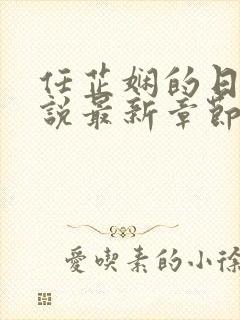 任芷娴的日
說最新章節
愛喫素的小徐